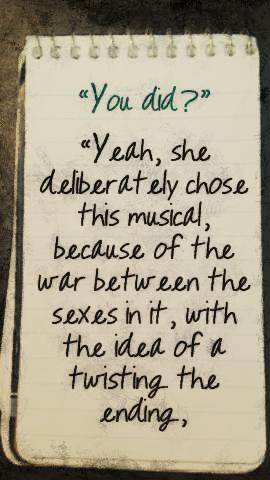 “You did?”
“Yeah, she
deliberately chose
this musical,
because of the
war between the
sexes in it, with
the idea of a
twisting the
ending,